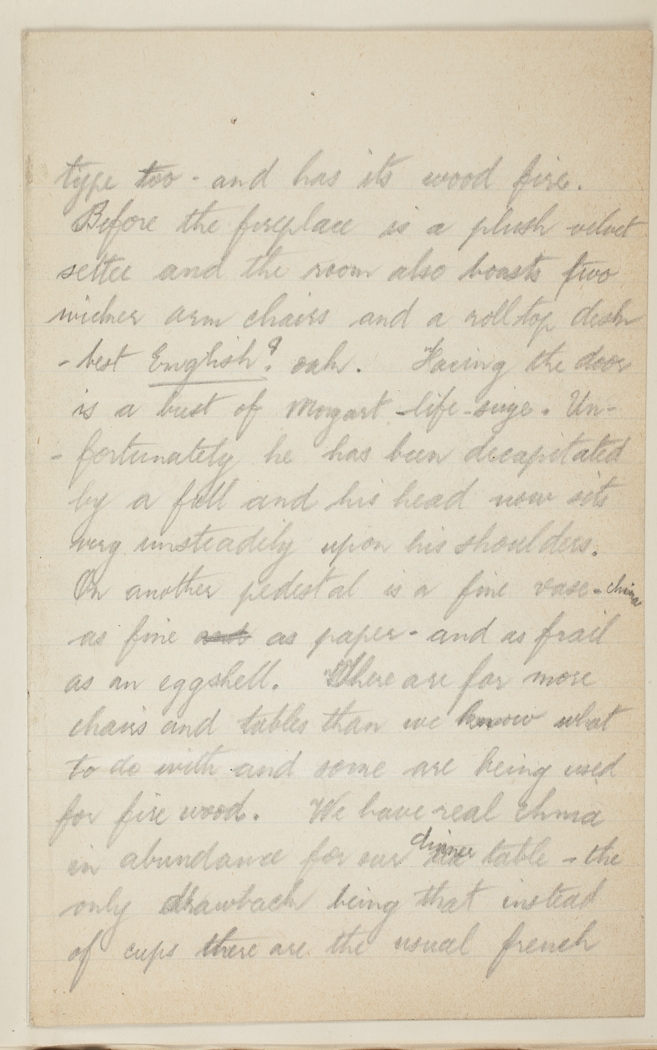 type too - and has its wood fire.
Before the fireplace is a plush velvet
settee and the room also boasts two
wicker arm chairs and a roll top desk
- best English? oak. Facing the door
is a bust of Mozart - life-size. Un-
- fortunately he has been decapitated
by a fall and his head now sits
very unsteadily upon his shoulders.
On another pedestal is a fine vase - china
as fine as paper - and as frail
as an eggshell. There are far more
chairs and tables than we know what
to do with and some are being used
for fire wood. We have real china
in abundance for our dinner table - the
only drawback being that instead
of cups there are the usual french